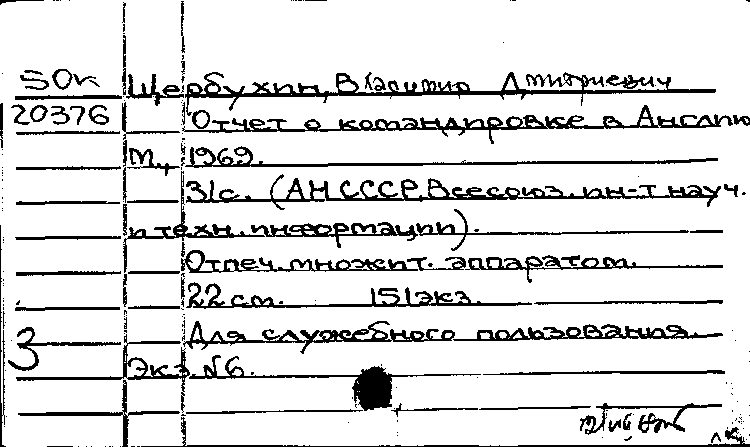 50к Щербухин, Владимир Дмитриевич
20376 Отчет о командировке в Англию
М., 1969.
31с. (АН СССР. Всесоюз. ин-т науч.
и техн. информации).
Отпеч. множит. аппаратом.
22 см. 151 экз.
Для служебного пользования.
3
Экз. №6.